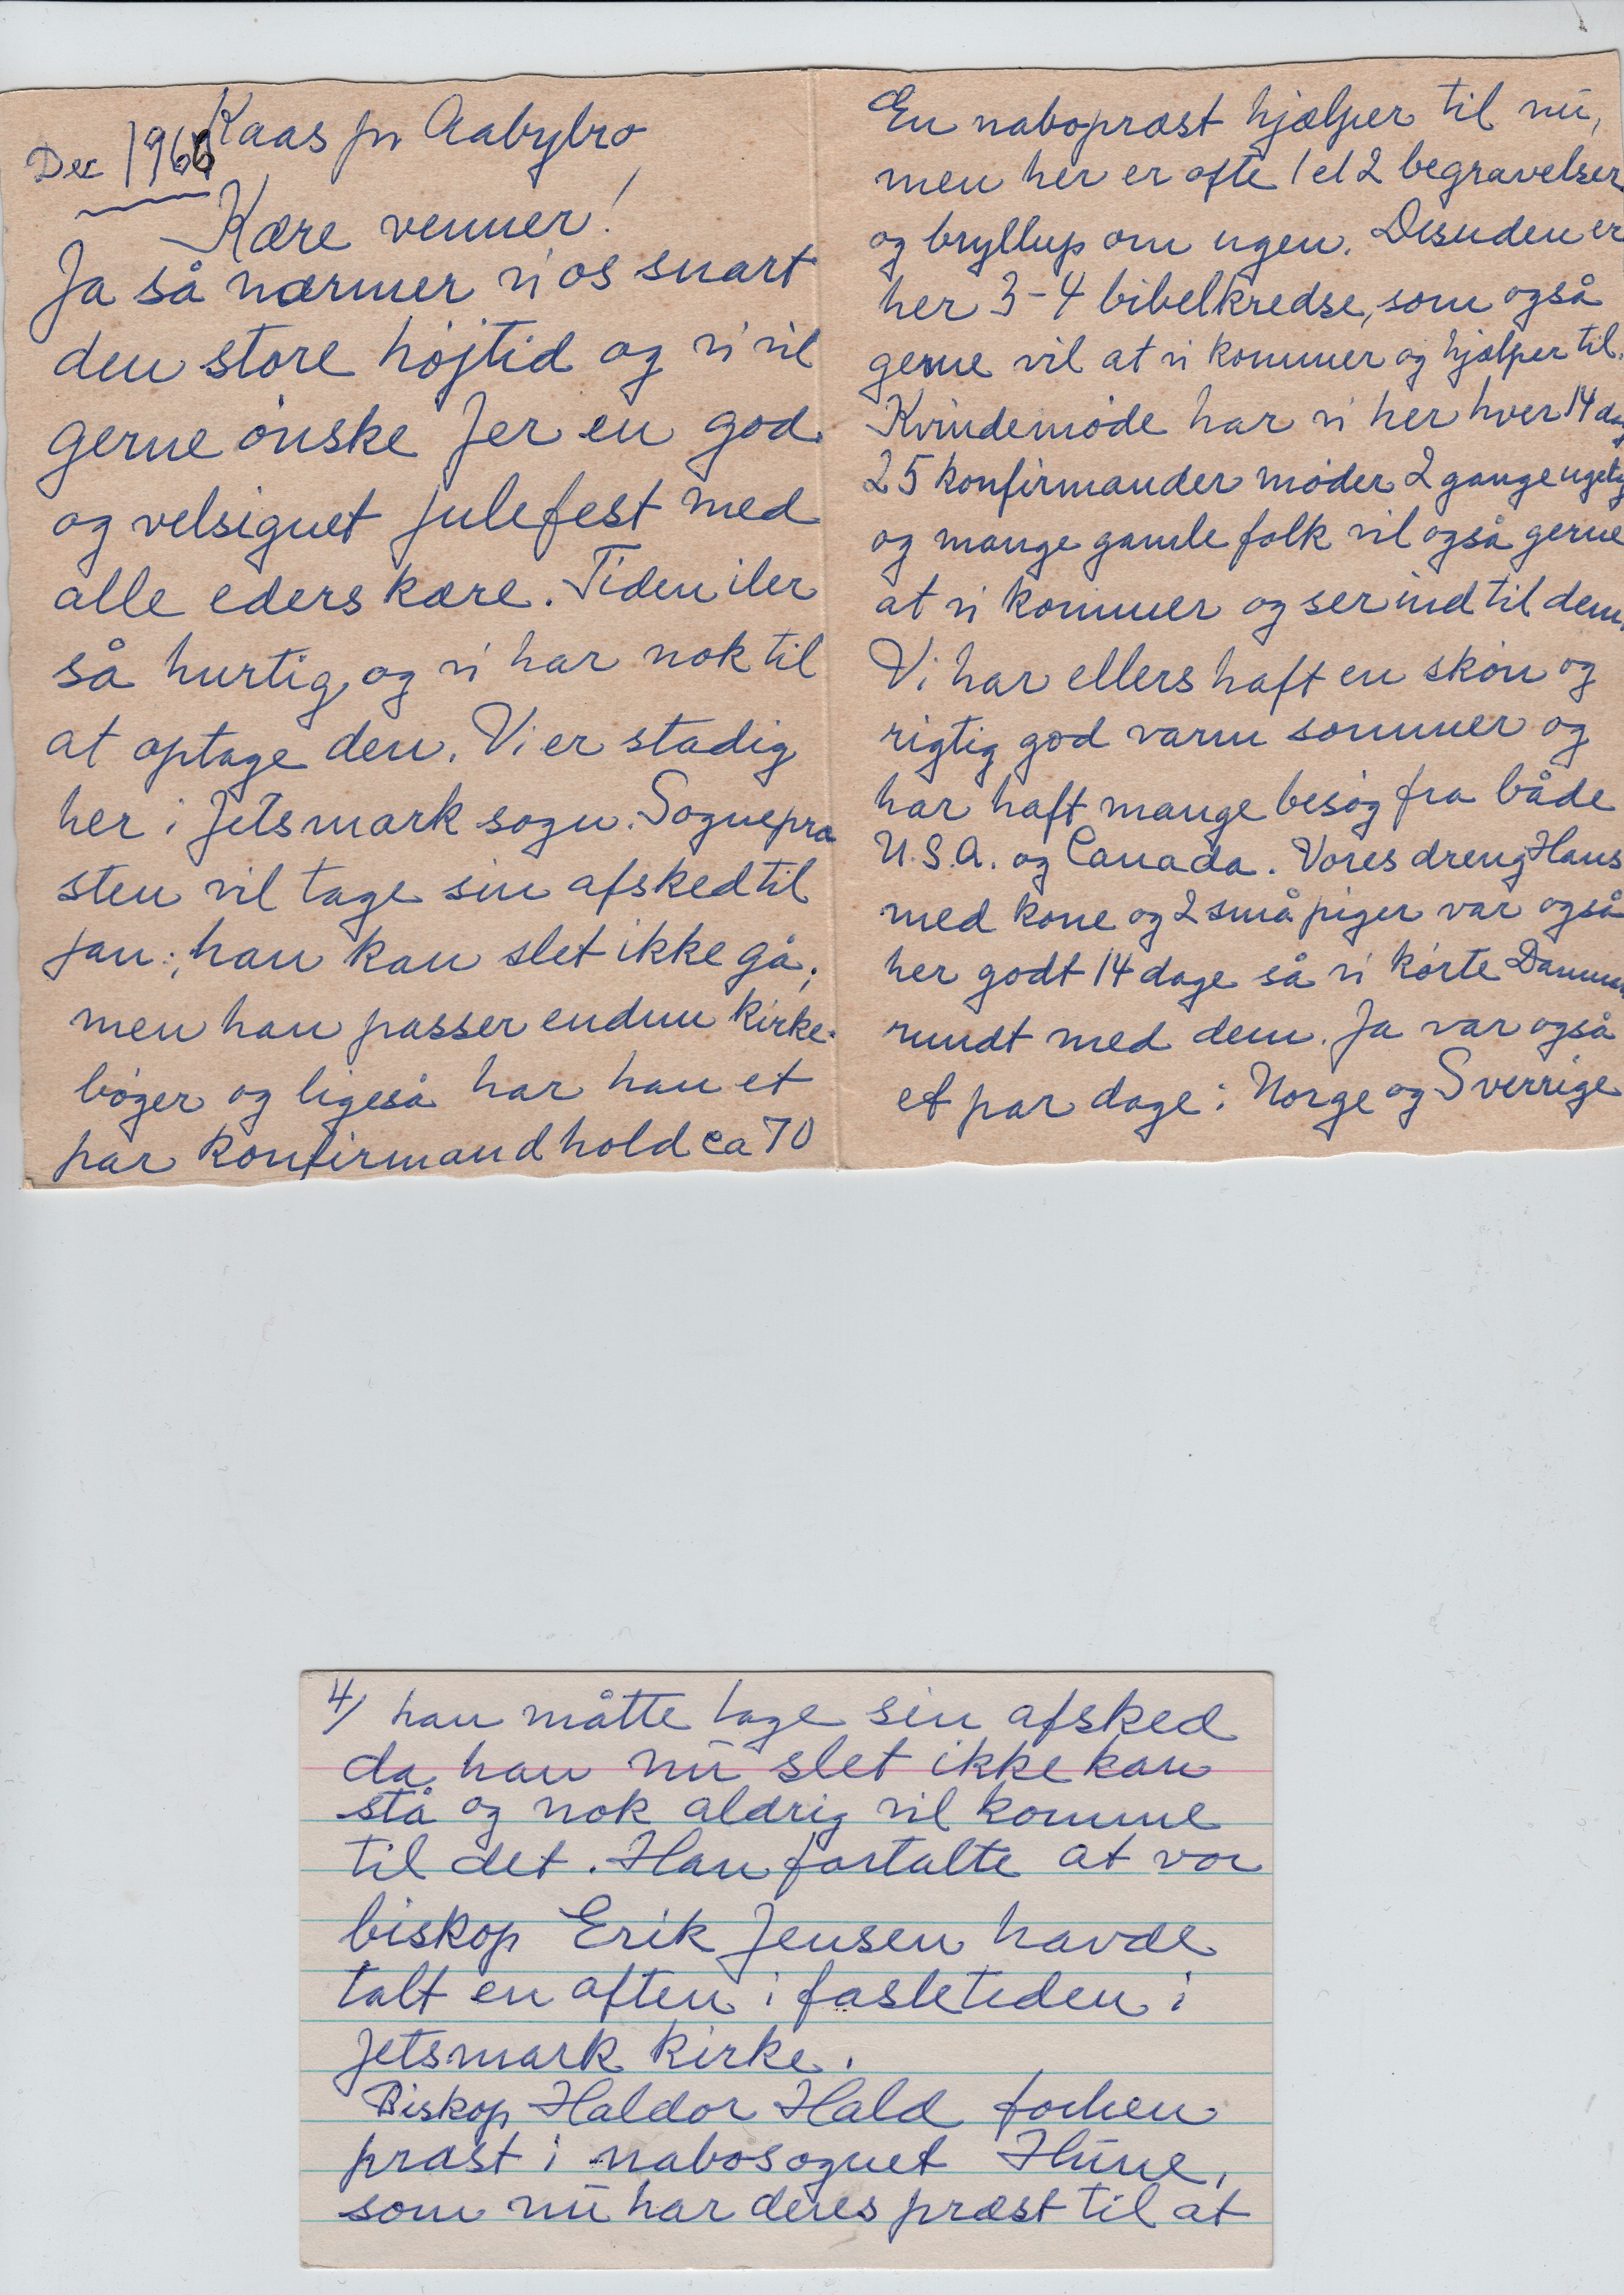 Dec 1966
Kaas pr Aabybro
Kære venner!
Ja så nærmer vi os snart
den store højtid og vi vil
gerne ønske Jer en god
og velsignet julefest med
alle eders kære. Tiden iler
så hurtig, og vi har nok til
at optage den. Vi er stadig
her i Jetsmark sogn. Sognepræ
sten vil tage sin afsked til
jan:, han kan slet ikke gå,
men han passer endnu kirke-
bøger og ligeså har han et
par konfirmandhold ca 70
En nabopræst hjælper til nū,
men her er ofte 1 el 2 begravelser
og bryllup om ugen. Desuden er
her 3-4 bibelkredse, som også
gerne vil at vi kommer og hjælper til.
Kvindemøde har vi her hver 14 dag
25 konfirmander møder 2 gange ugtlg
og mange gamle folk vil også gerne
at vi kommer og ser ind til dem.
Vi har ellers haft en skøn og
rigtig god varm sommer og
har haft mange besøg fra både
U.S.A. og Canada. Vores dreng Hans
med kone og 2 små piger var også
her godt 14 dage så vi kørte Danmark
rundt med dem. Ja var også
et par dage i Norge og Sverrige
4/ han måtte tage sin afsked
da han nū slet ikke kan
stå og nok aldrig vil komme
til det. Han fortalte at vor
biskop Erik Jensen havde
talt en aften i fasteteden i
Jetsmark kirke.
Biskop Haldor Hald forhen
præst i nabosognet Hūne,
som nū har deres præst til at